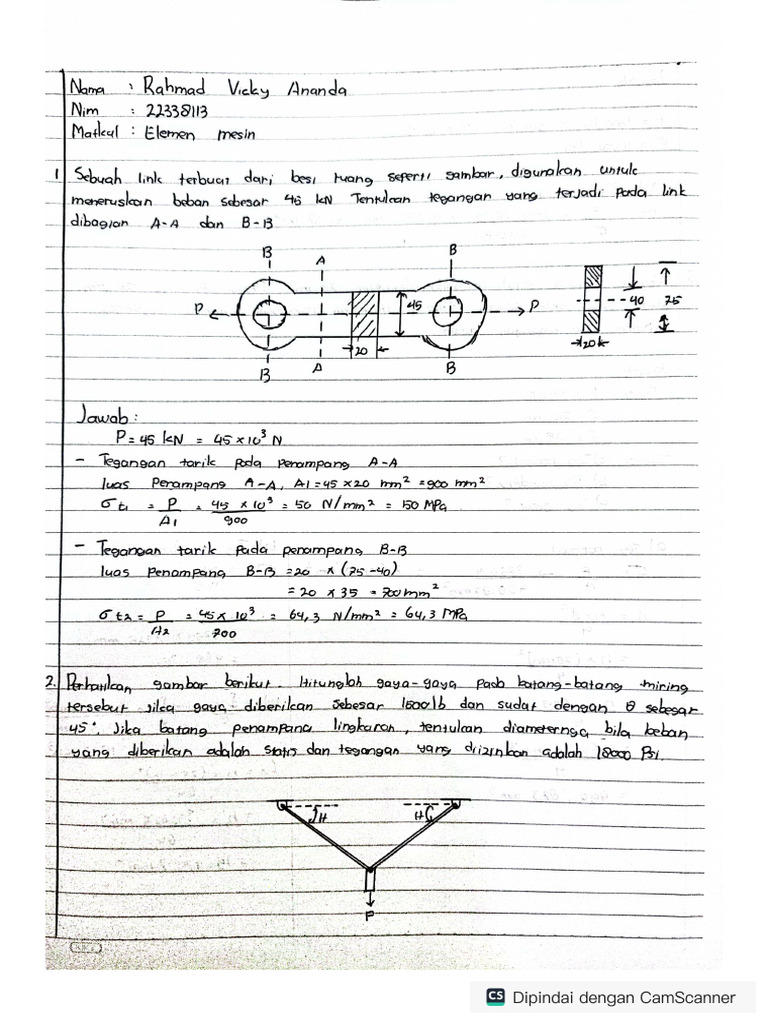 Nama : Rahmad Vicky Ananda
Nim : 22338113
Matkul : Elemen mesin
1 Sebuah link terbuat dari besi ruang seperti gambar, digunakan untuk
meneruskan beban sebesar 45 kN Tentukan tegangan yang terjadi pada link
dibagian A-A dan B-B
B
A
B
P
45
P
40
75
20
20
B
A
B
Jawab :
P = 45 kN = 45 × 10³ N
- Tegangan tarik pada penampang A-A
luas Penampang A-A, A1 = 45 × 20 mm² = 900 mm²
σt1 = P/A1 = 45 × 10³/900 = 50 N/mm² = 150 MPa
- Tegangan tarik pada penampang B-B
luas Penampang B-B = 20 × (75 - 40)
= 20 × 35 = 700 mm²
σt2 = P/A2 = 45 × 10³/700 = 64,3 N/mm² = 64,3 MPa
2. Perhatikan gambar berikut. Hitunglah gaya-gaya pada batang-batang miring
tersebut jika gaya diberikan sebesar 1500 lb dan sudat dengan θ sebesar
45°. Jika batang penampang lingkaran, tentukan diameternya bila beban
yang diberikan adalah statis dan tegangan yang diizinkan adalah 18000 Psi.
H
H
P
CS Dipindai dengan CamScanner